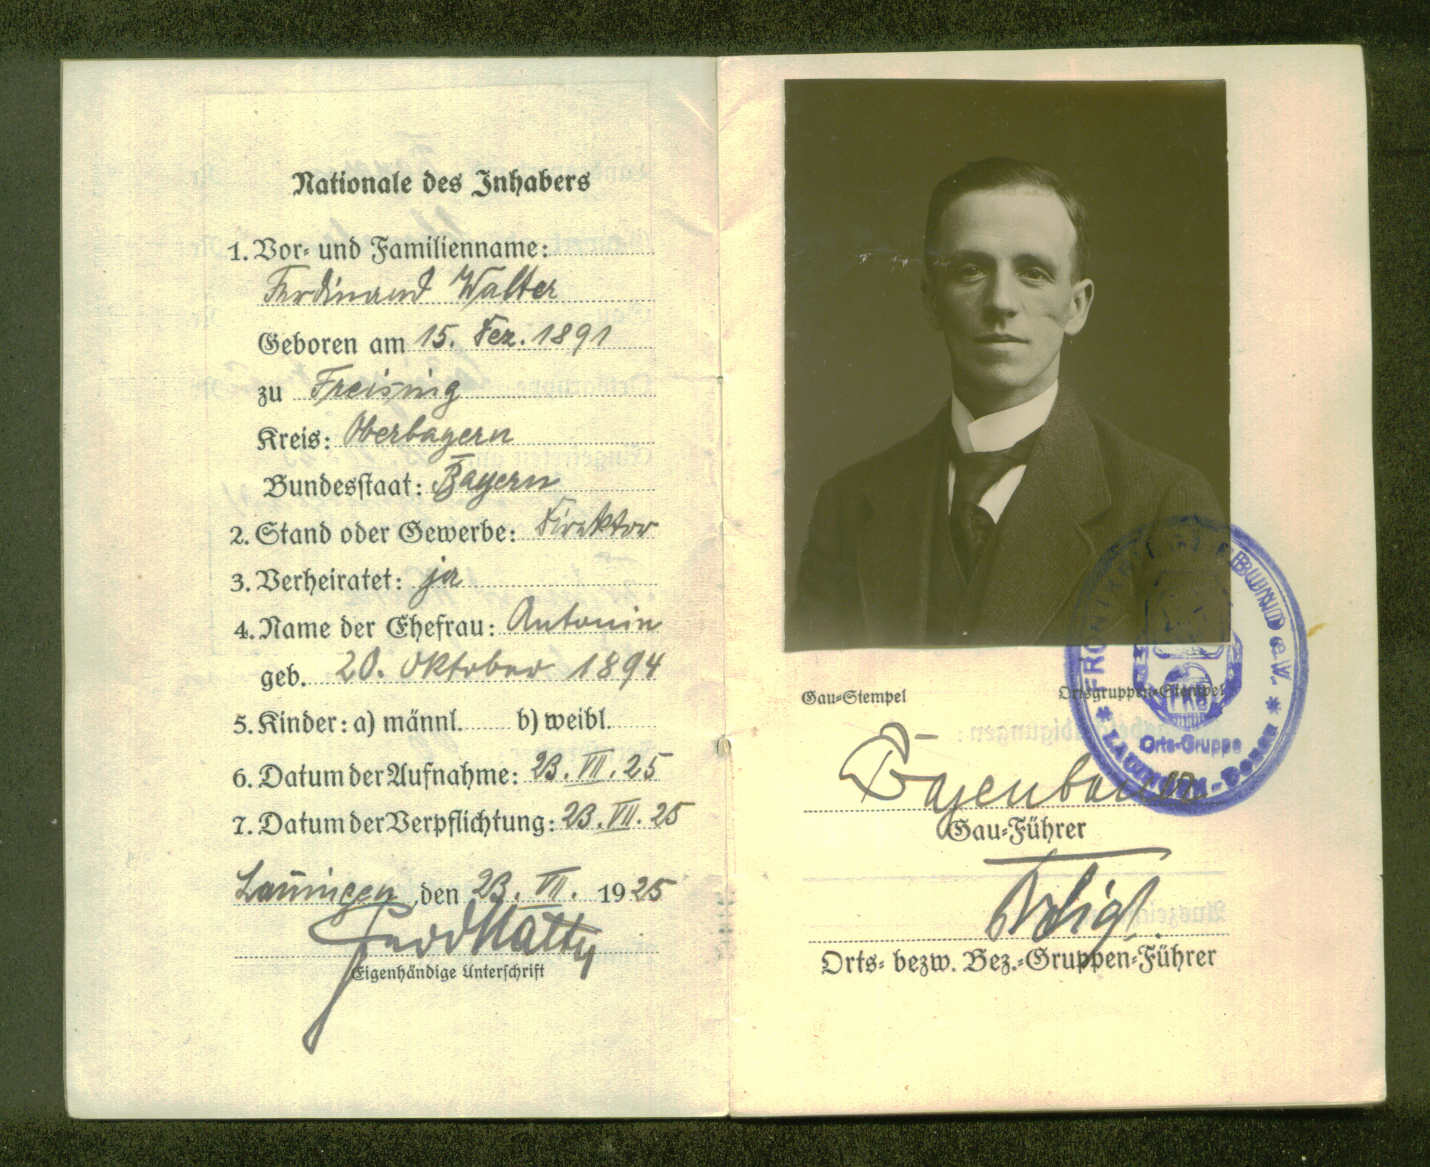 Nationale des Inhabers
1. Vor- und Familienname:
Ferdinand Walter
Geboren am 15. Dez. 1891
zu Freising
Kreis: Oberbayern
Bundesstaat: Bayern
2. Stand oder Gewerbe: Direktor
3. Verheiratet: ja
4. Name der Ehefrau: Antonin
geb. 20. Oktober 1894
5. Kinder: a) männl. b) weibl.
6. Datum der Aufnahme: 23. VII. 25
7. Datum der Verpflichtung: 23. VII. 25
Lauingen, den 23. VII. 1925
Eigenhändige Unterschrift
BUND e.V.
Gau-Stempel
Ortsgruppen-Stempel
Orts-Gruppe
Gau-Führer
Orts- bezw. Bez.-Gruppen-Führer